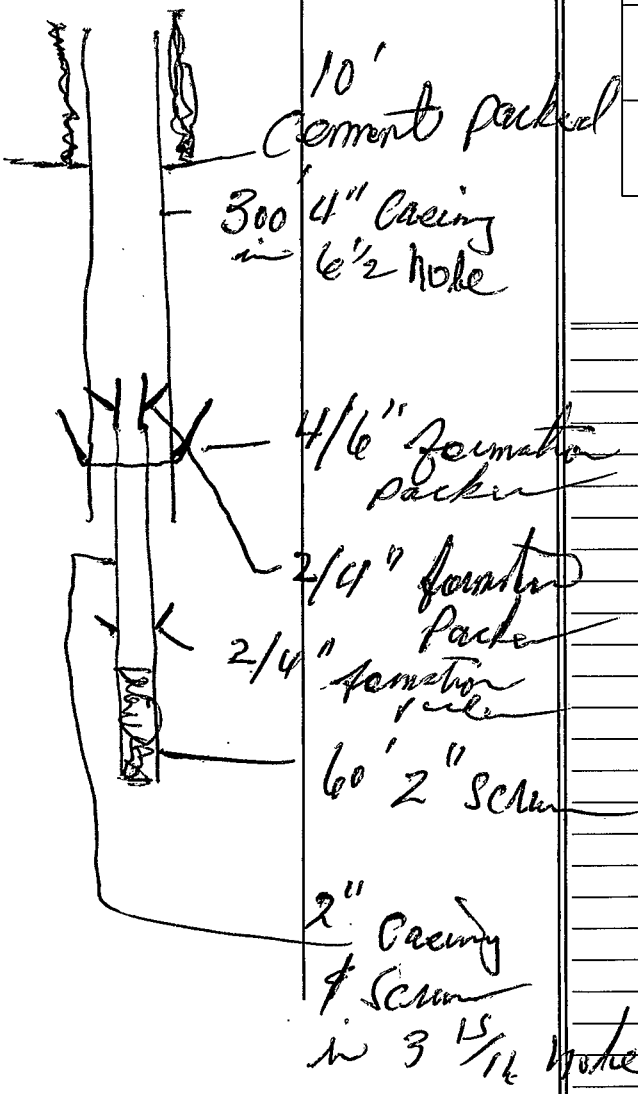 10'
Cement packed
300' 4" Casing
in 6 1/2 hole
4/6" formation
packer
2/4" formation
Packer
2/4"
formation
packer
60' 2" Screen
2"
Casing
& Screen
in 3 15/16 hole